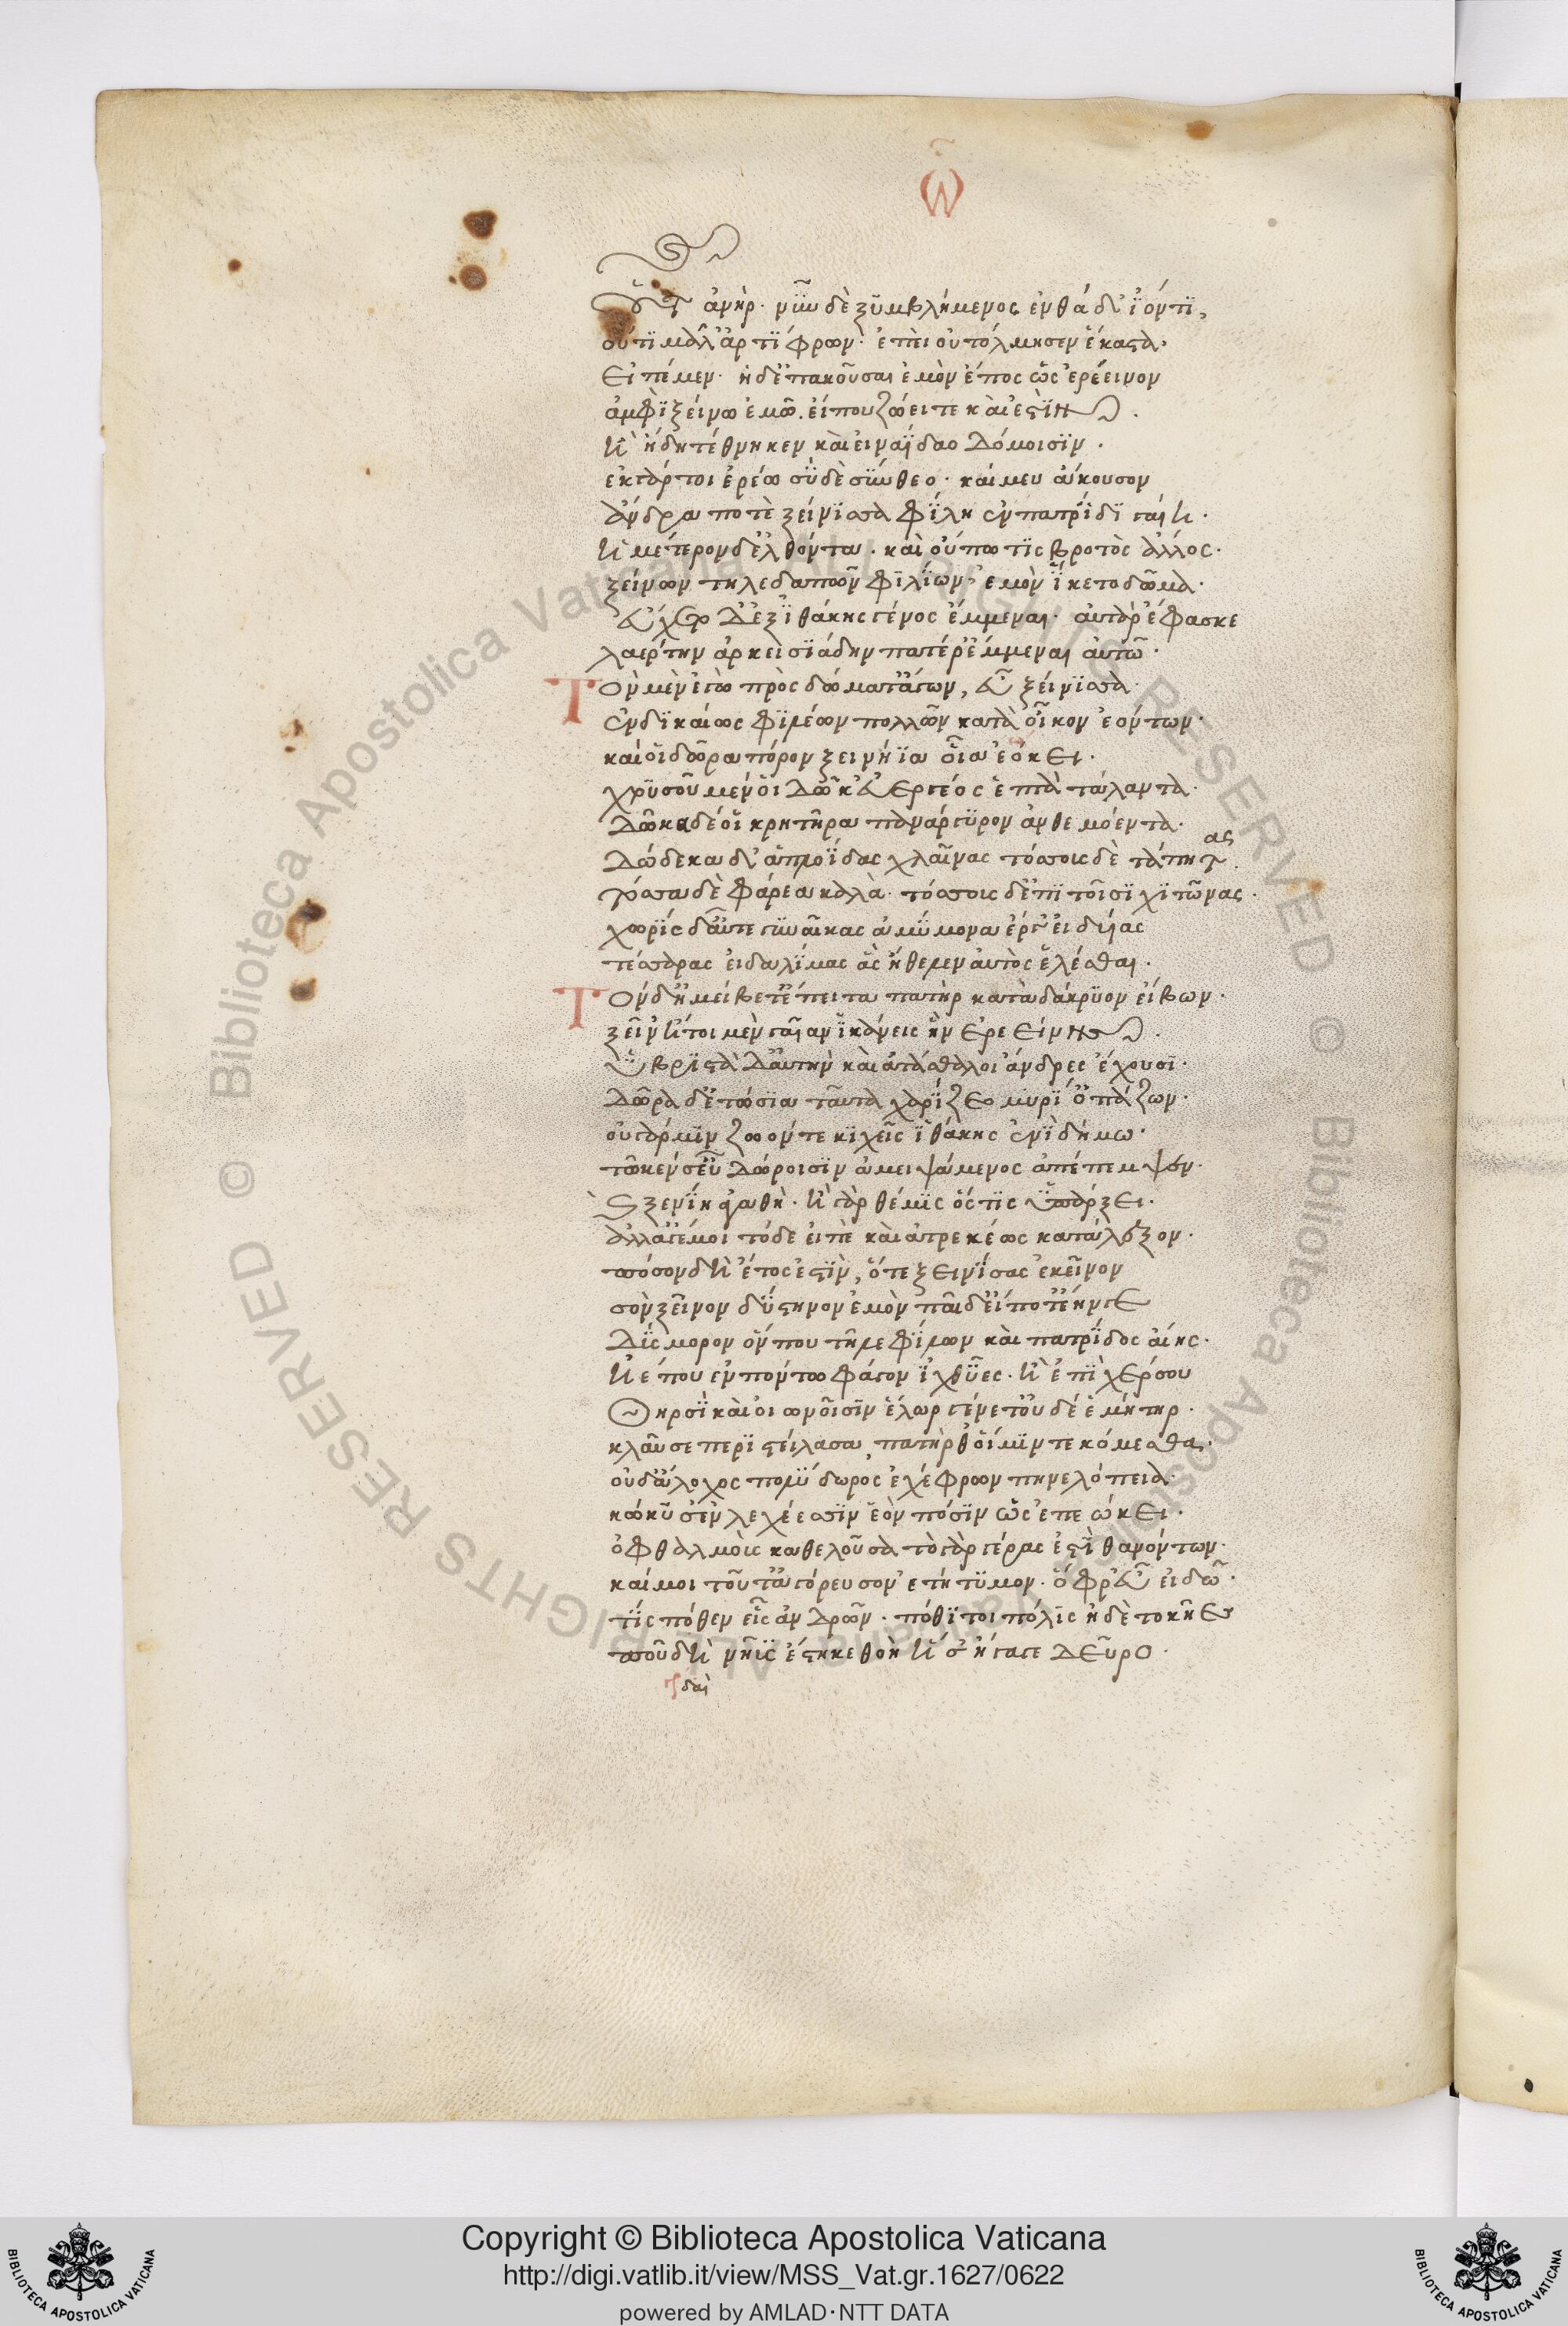 ω
οὗτος ἀνήρ· νῦν δὲ ξυμβλήμενος ἐνθάδ' ἰόντι,
οὔτι μάλ' ἀρτίφρων· ἐπεὶ οὐ τόλμησεν ἕκαστα·
εἰπέμεν· ἠδ' ἐπακοῦσαι ἐμὸν ἔπος ὡς ἐρέεινον
ἀμφὶ ξείνω ἐμῶ. εἴ που ζώει τε καὶ ἔστιν.
ἢ ἤδη τέθνηκεν καὶ εἰν ἀΐδαο δόμοισιν.
ἐκ γάρ τοι ἐρέω σὺ δὲ σύνθεο· καί μευ ἄκουσον
ἄνδρα ποτὲ ξείνισσα φίλη ἐν πατρίδι γαίη·
ἡμέτερον δ' ἐλθόντα· καὶ οὔπω τις βροτὸς ἄλλος·
ξείνων τηλεδαπῶν φιλίων ἐμὸν ἵκετο δῶμα·
εὔχετο δ' ἐξ ἰθάκης γένος ἔμμεναι· αὐτὰρ ἔφασκε
λαέρτην ἀρκεισιάδην πατέρ' ἔμμεναι αὐτῶ·
Τὸν μὲν ἐγὼ πρὸς δώματ' ἄγων, εὖ ξείνισσα·
ἐνδικαίως φιλέων πολλῶν κατὰ οἶκον ἐόντων·
καί οἱ δῶρα πόρον ξεινήϊα οἷα ἐώκει.
χρυσοῦ μέν οἱ δῶκ' εὐεργέος ἑπτὰ τάλαντα·
δῶκα δέ οἱ κρητῆρα πανάργυρον ἀνθεμόεντα·
δώδεκα δ' ἁπλοΐδας χλαίνας τόσσοις δὲ τάπητας.
τόσσα δὲ φάρεα καλὰ· τόσσοις δ' ἐπὶ τοῖσι χιτῶνας.
χωρὶς δ' αὖτε γυναῖκας ἀμύμονα ἔργ' εἰδυίας
τέσσαρας εἰδαλίμας ἃς ἤθελεν αὐτὸς ἑλέσθαι.
Τὸν δ' ἠμείβετ' ἔπειτα πατὴρ κατὰ δάκρυον εἴβων·
ξεῖν' ἤτοι μὲν γαῖαν ἱκάνεις ἣν ἐρεείνεις.
ὑβρισταὶ δ' αὐτὴν καὶ ἀτάσθαλοι ἄνδρες ἔχουσι·
δῶρα δ' ἐτώσια ταῦτα χαρίζεο μυρί' ὀπάζων·
οὐ γάρ μιν ζωόντε κιχεῖς ἰθάκης ἐνὶ δήμω·
τῶ κέν σ' εὖ δώροισιν ἀμειψάμενος ἀπέπεμψεν·
καὶ ξενίη ἀγαθὴ· ἡ γὰρ θέμις ὅς τις ὑπάρξει.
ἀλλ' ἄγε μοι τόδε εἰπὲ καὶ ἀτρεκέως κατάλεξον·
πόσον δὴ ἔτος ἐστὶν, ὅτε ξεινίσας ἐκεῖνον
σὸν ξεῖνον δύστηνον ἐμὸν παῖδ' εἴ ποτ' ἔην γε
δίσμορον ὅν που τῆλε φίλων καὶ πατρίδος αἴης·
ἠέ που ἐν πόντω φάγον ἰχθύες. ἢ ἐπὶ χέρσου
θηρσὶ καὶ οἰωνοῖσιν ἕλωρ γένετ' οὐδέ ἑ μήτηρ·
κλαῦσε περιστείλασα, πατήρ θ' οἵ μιν τεκόμεσθα·
οὐδ' ἄλοχος πολύδωρος ἐχέφρων πηνελόπεια·
κώκυσ' ἐν λεχέεσσιν ἑὸν πόσιν ὡς ἐπεώκει·
ὀφθαλμοὺς καθελοῦσα τὸ γὰρ γέρας ἐστὶ θανόντων·
καί μοι τοῦτ' ἀγόρευσον ἐτήτυμον· ὄφρ' εὖ εἰδῶ·
τίς πόθεν εἶς ἀνδρῶν· πόθι τοι πόλις ἠδὲ τοκῆες
ποῦ δὴ νηῦς ἕστηκε θοὴ ἥ σ' ἤγαγε δεῦρο·
Copyright © Biblioteca Apostolica Vaticana
http://digi.vatlib.it/view/MSS_Vat.gr.1627/0622
powered by AMLAD·NTT DATA